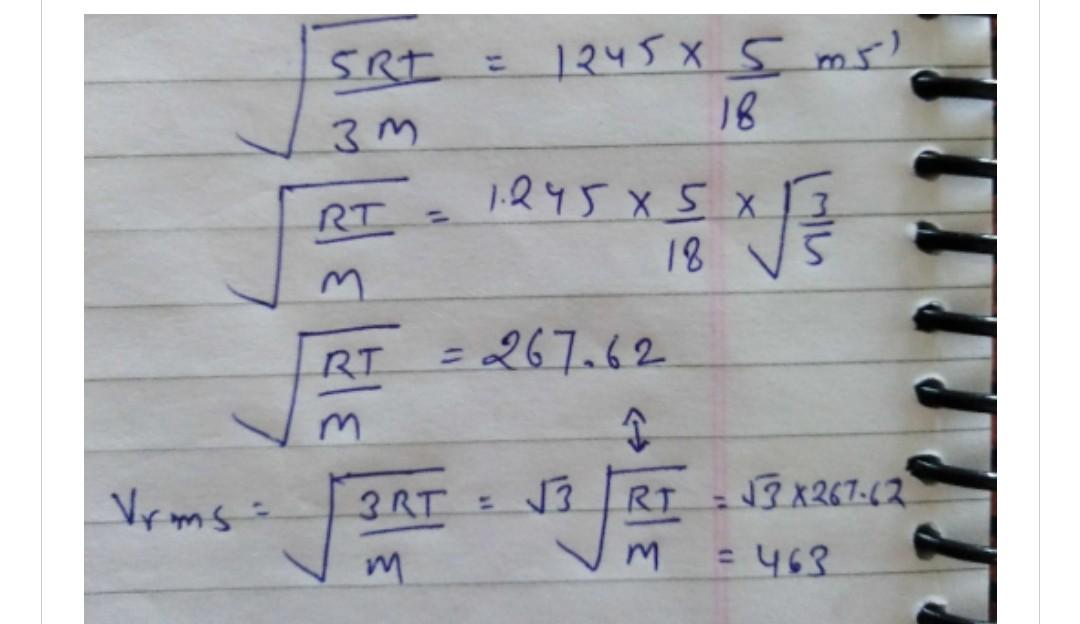 √(5RT/3M) = 1245 × 5/18 ms¹
√(RT/M) = 1.245 × 5/18 × √(3/5)
√(RT/M) = 267.62
↕
Vrms = √(3RT/M) = √3 √(RT/M) = √3 × 267.62
= 463